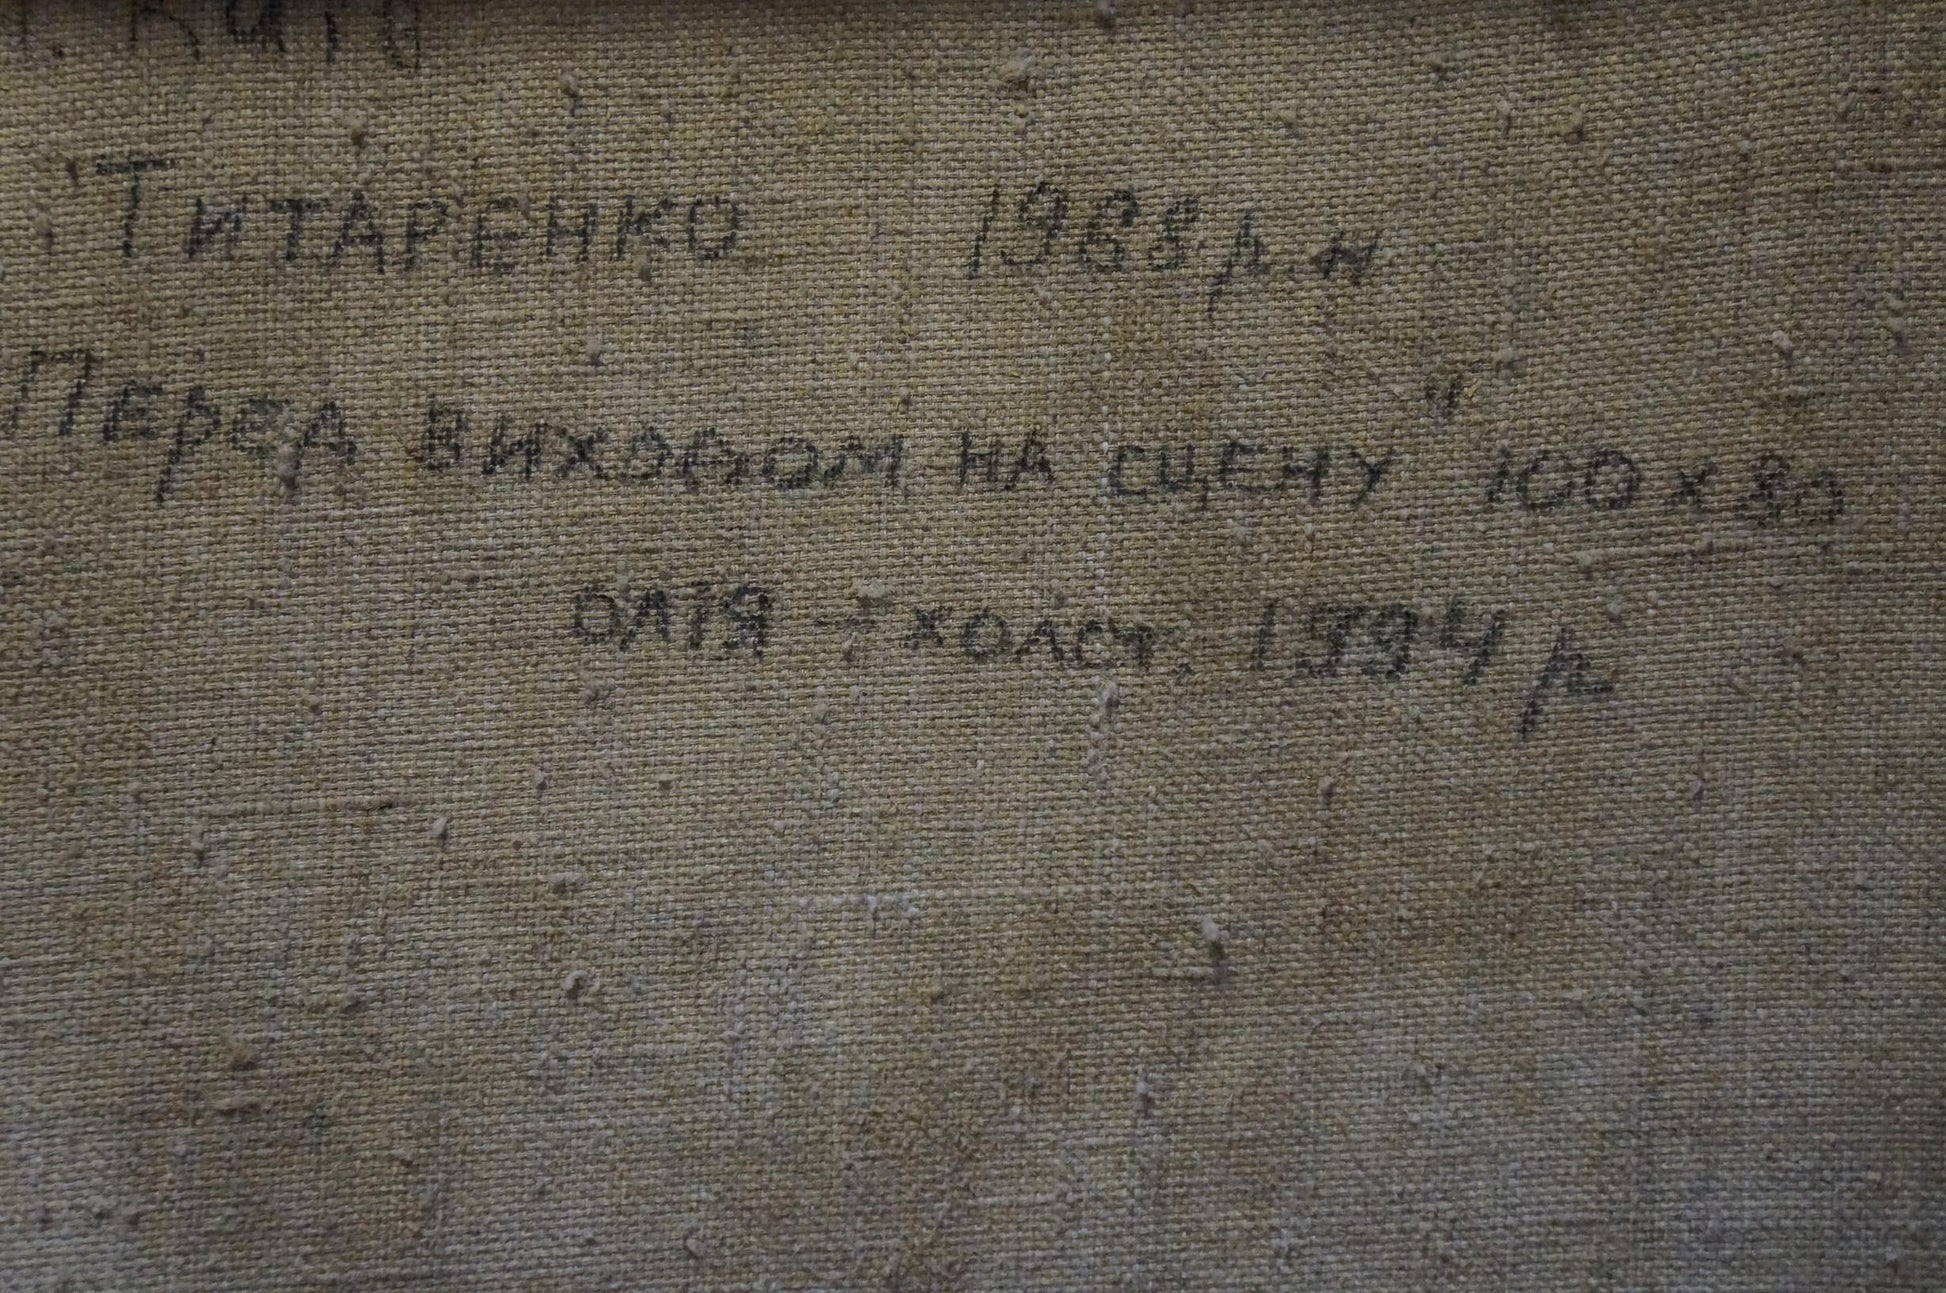 Титаренко 1968 р.н
Перед виходом на сцену" 100 х 80
олія – холст, 1994 р